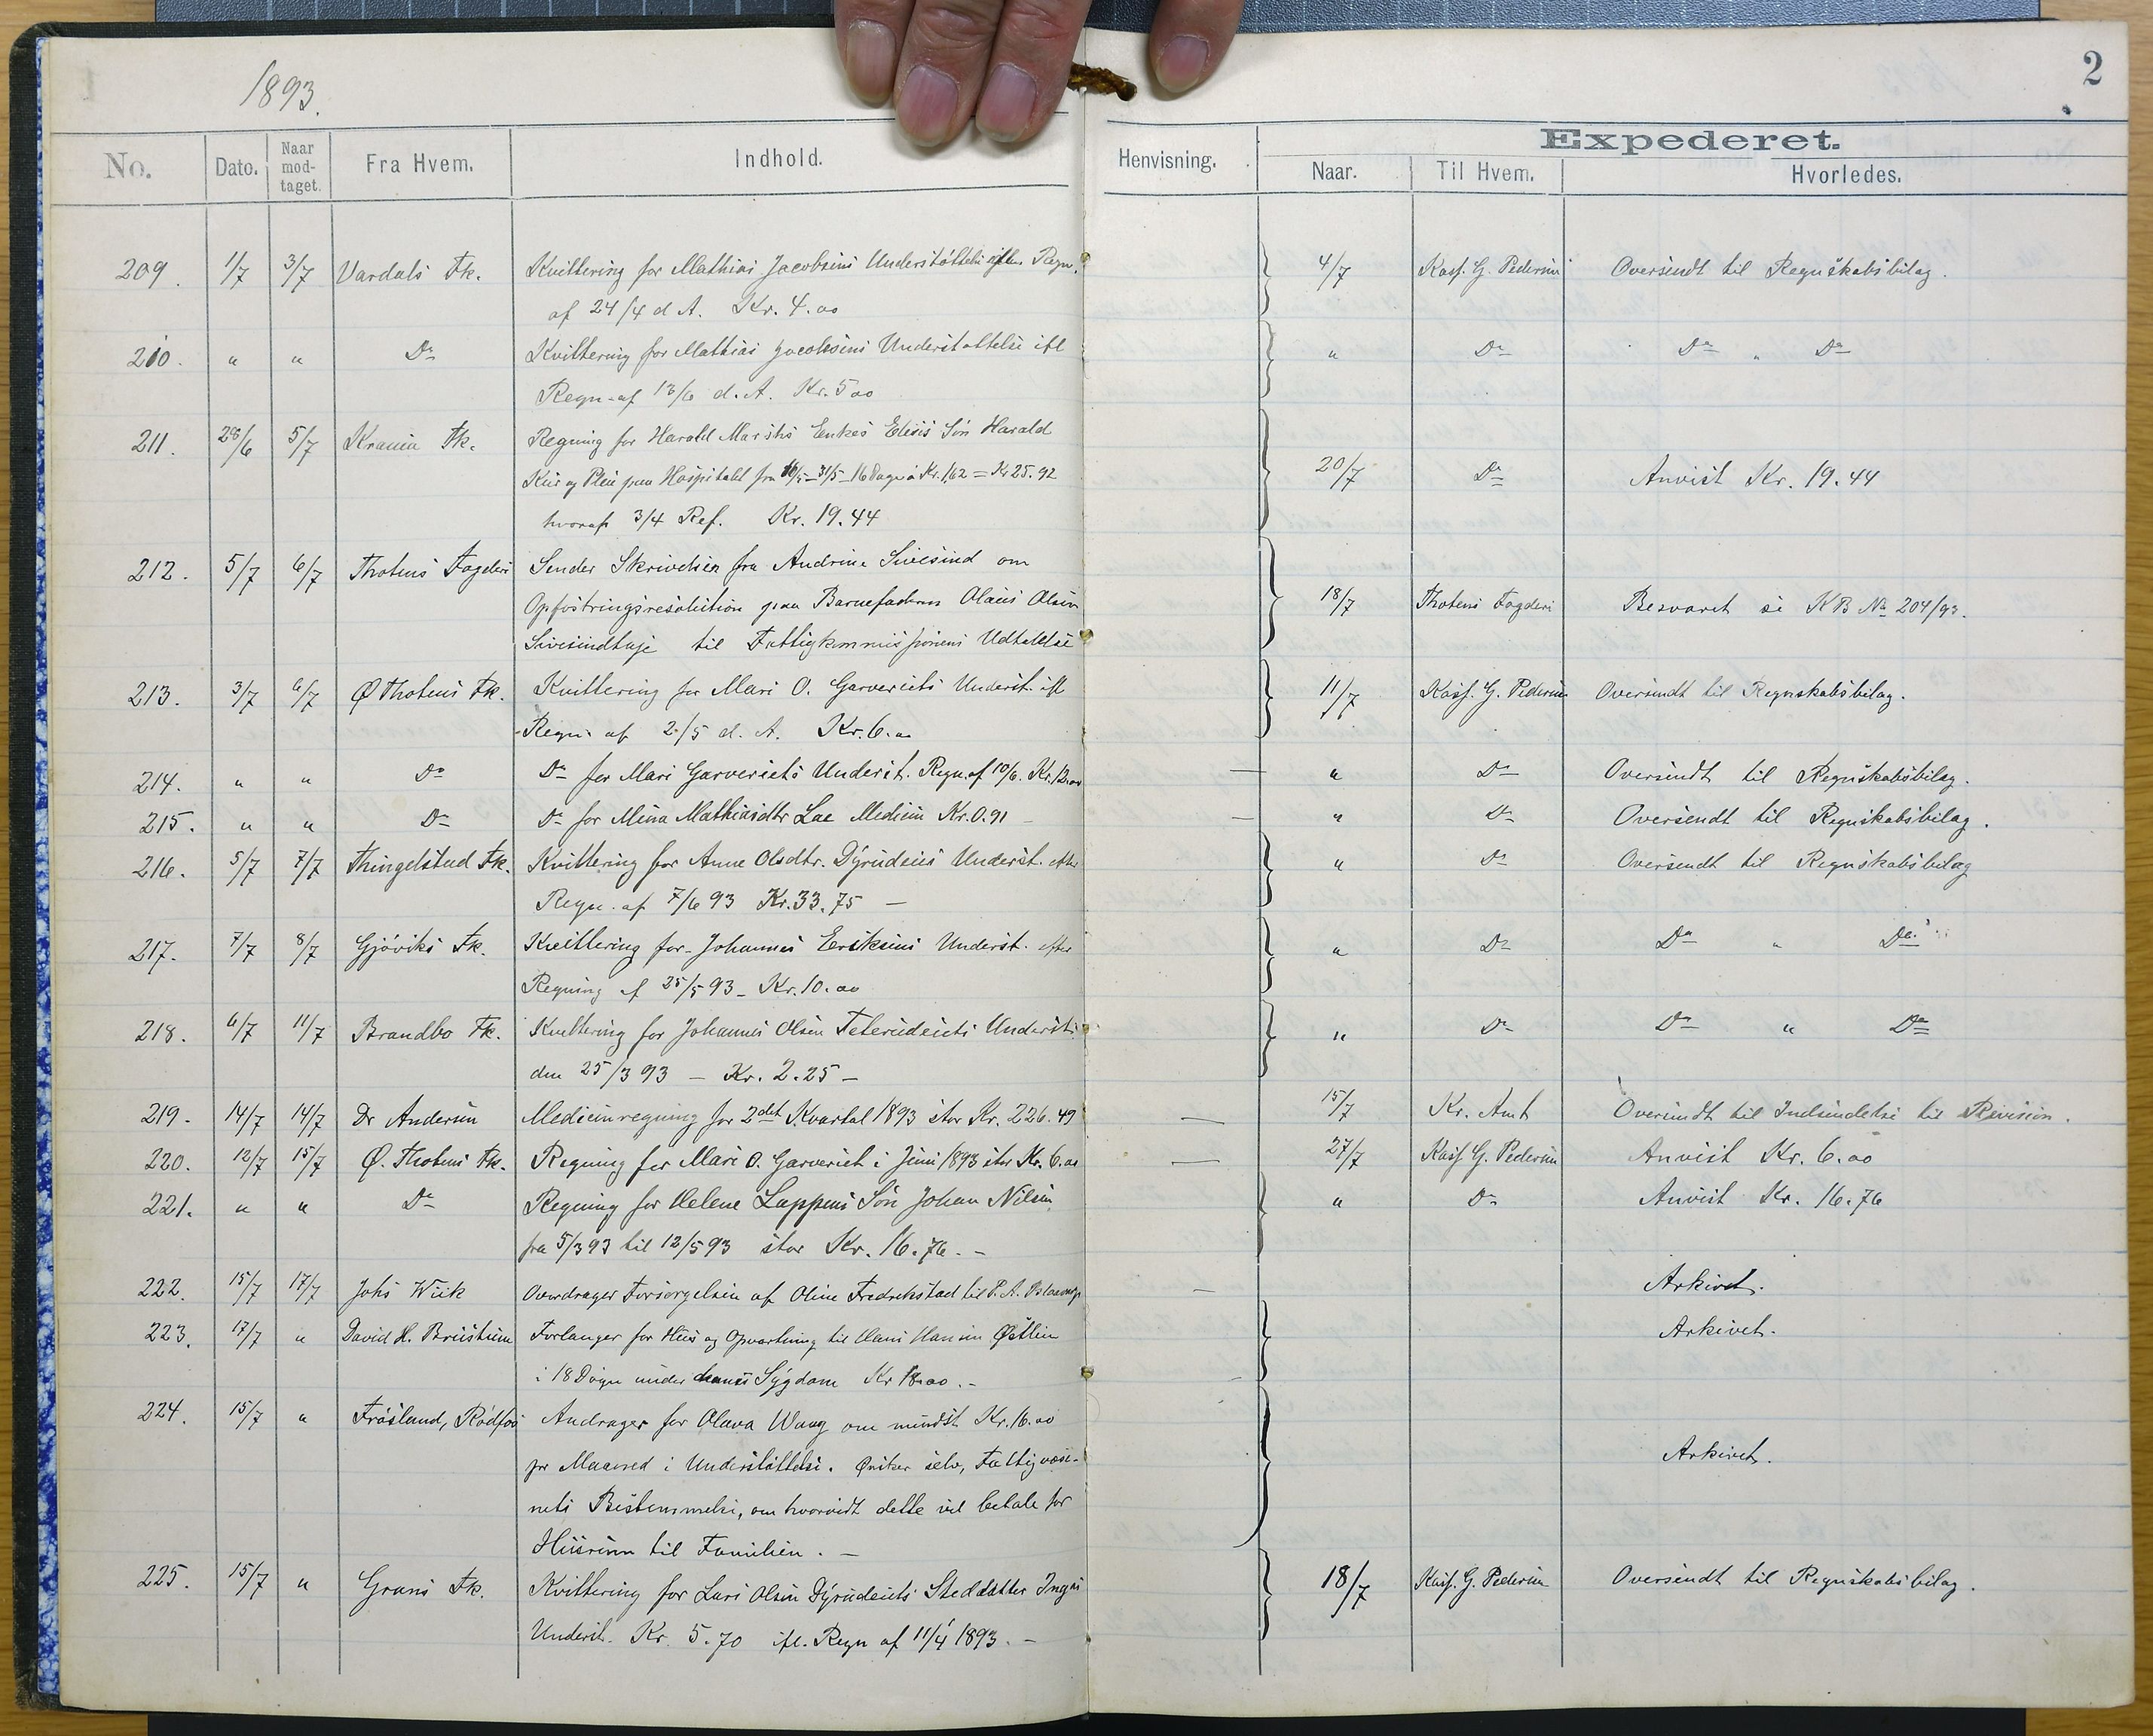 1893.
2
Expederet.
No. Dato. Naar mod-taget. Fra Hvem. Indhold. Henvisning. Naar. Til Hvem. Hvorledes.
209. 1/7 3/7 Vardals Fk. Kvittering for Mathias Jacobsens Understøttelse Regn. 4/7 Kass. G. Pedersen Oversendt til Regnskabsbilag.
af 24/4 d A. Kr. 4.00
210. " " Do Kvittering for Mathias Jacobsens Understøttelse ifl " Do Do " Do
Regn. af 13/6 d. A. Kr. 5 00
211. 28/6 5/7 Fk. Regning for Harald Enkes Søn Harald
Kur og Pleie paa Hospitalet fra 16/5 - 31/5 - 16 Dage à Kr. 1,62 = Kr 25.92 20/7 Do Anvist Kr. 19.44
hvoraf 3/4 Ref. Kr. 19.44
212. 5/7 6/7 Thotens Fogderi Sender Skrivelsen fra Andrine Sivesind om
Opfostringsresolution paa Barnefaderen Olaus Olsen 18/7 Thotens Fogderi Besvaret se KB No 204/93.
til Fattigkommissionens Udtalelse
213. 3/7 6/7 Ø Thotens Fk. Kvittering for Mari O. Garveriets Underst. ifl 11/7 Kass. G. Pedersen Oversendt til Regnskabsbilag.
Regn. af 2/5 d. A. Kr. 6.00
214. " " Do Do for Mari Garveriets Underst. Regn. af 10/6. Kr. 12.00 — " Do Oversendt til Regnskabsbilag.
215. " " Do Do for Mina Mathiasdtr Lae Medicin Kr. 0.91 — " Do Oversendt til Regnskabsbilag.
216. 5/7 7/7 Thingelstad Fk. Kvittering for Anne Olsdtr. Dyrudeies Underst. efter " Do Oversendt til Regnskabsbilag
Regn. af 7/6 93 Kr. 33.75 —
217. 7/7 8/7 Gjøviks Fk. Kvittering for Johannes Eriksens Underst. efter " Do Do " Do
Regning af 25/5 93 - Kr. 10.00
218. 6/7 11/7 Brandbo Fk. Kvittering for Johannes Olsen Underst. " Do Do " Do
den 25/3 93 — Kr. 2.25 —
219. 14/7 14/7 Dr Andersen Medicinregning for 2det Kvartal 1893 stor Kr. 226.49 — 15/7 Kr. Amt Oversendt til Indsendelse til Revision.
220. 12/7 15/7 Ø. Thotens Fk. Regning for Mari O. Garveriet i Juni 1893 stor Kr. 6.00 — 27/7 Kass. G. Pedersen Anvist Kr. 6.00
221. " " Do Regning for Helene Lappens Søn Johan Nilsen " Do Anvist Kr. 16.76
fra 5/3 93 til 12/5 93 stor Kr. 16.76. -
222. 15/7 17/7 Johs Wiik Overdrager Forsørgelsen af Oline Fredrikstad til P. A. — Arkivet.
223. 17/7 " David H. Forlanger for Hus og Opvartning til Hans Hansen Østlien Arkivet.
i 18 Døgn under hans Sygdom Kr 18.00. -
224. 15/7 " Frøsland, Rødfos Andrager for Olava Waag om mindst Kr. 16.00
pr Maaned i Understøttelse. Ønsker selv, Fattigvæse- Arkivet.
nets Bestemmelse, om hvorvidt dette vil betale for
Husrum til Familien. —
225. 15/7 " Grans Fk. Kvittering for Lars Olsen Dyrudeiets Steddatter Ingas 18/7 Kass. G. Pedersen Oversendt til Regnskabsbilag.
Underst. Kr. 5.70 ifl. Regn af 11/4 1893. —